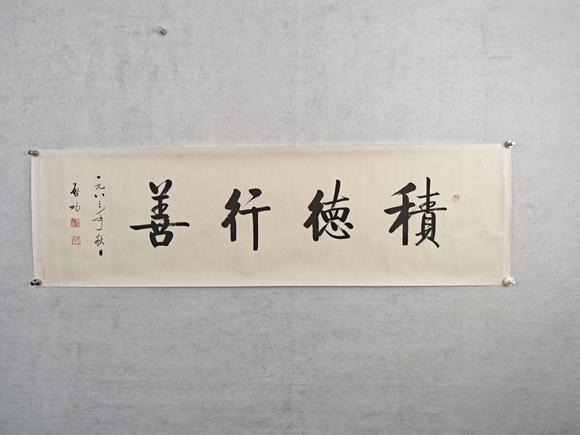 積德行善
一九八三年秋日
启功